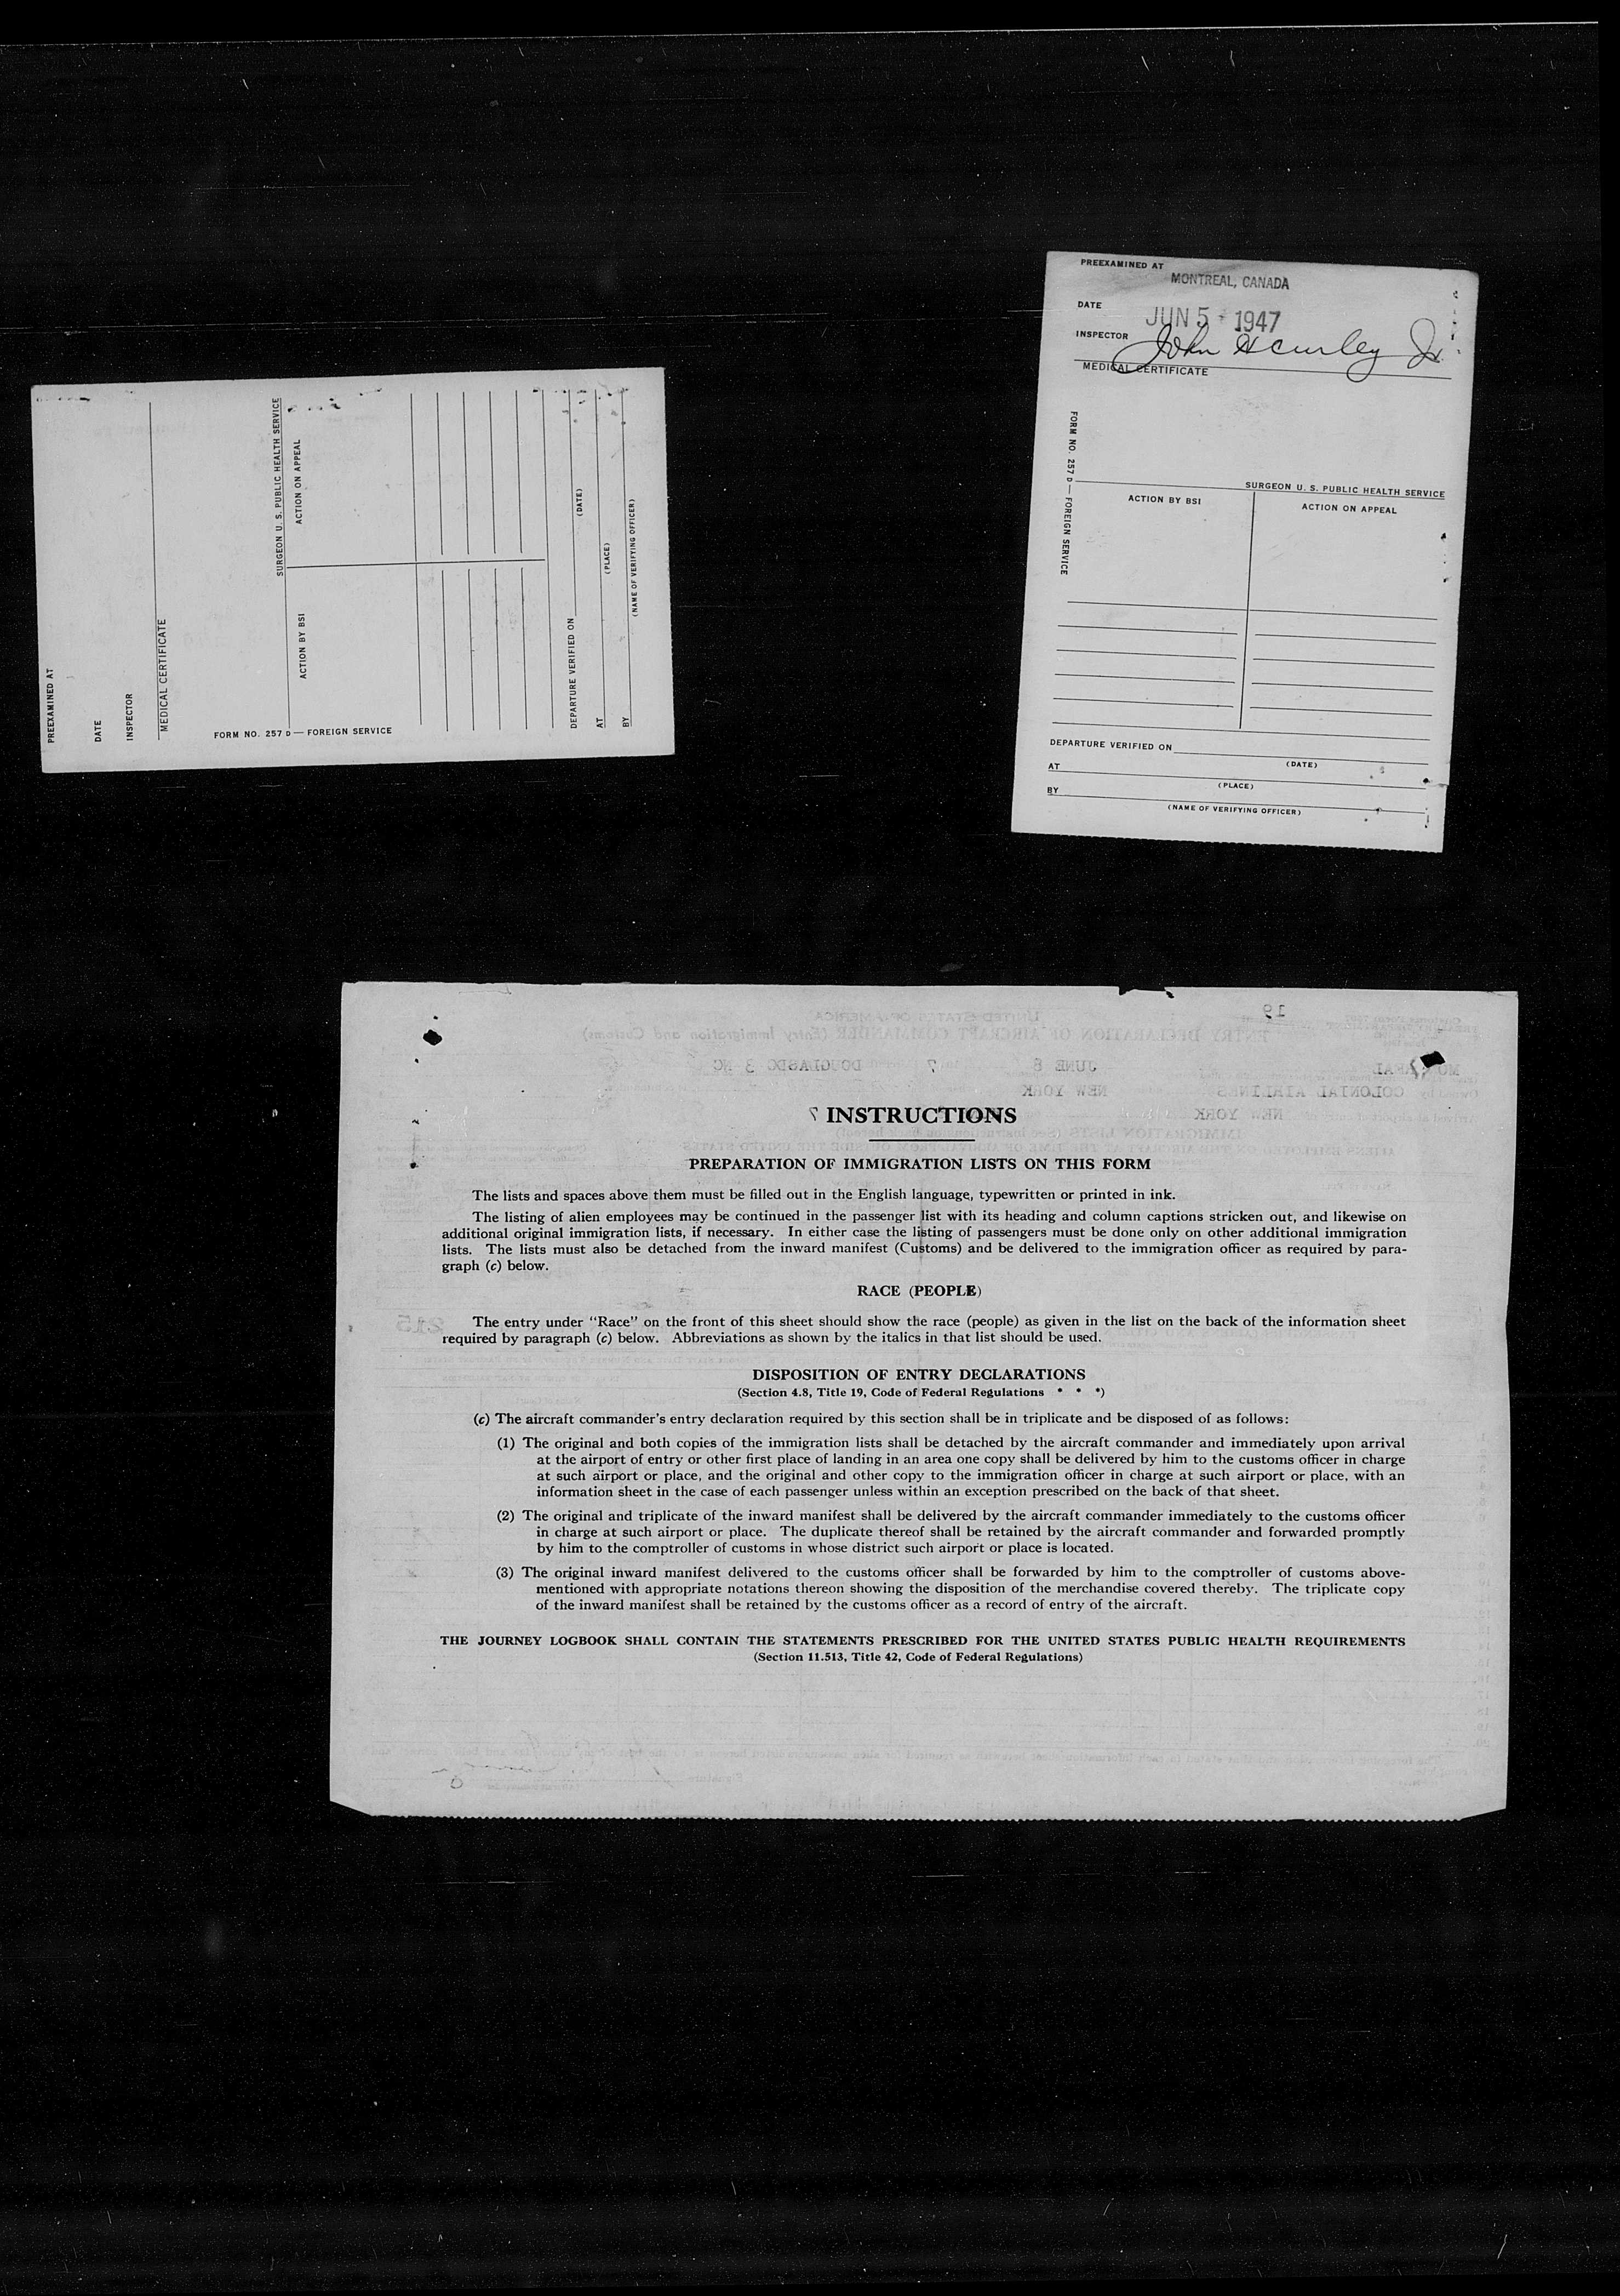 PREEXAMINED AT
DATE
INSPECTOR
MEDICAL CERTIFICATE
FORM NO. 257 D — FOREIGN SERVICE
SURGEON U. S. PUBLIC HEALTH SERVICE
ACTION BY BSI
ACTION ON APPEAL
DEPARTURE VERIFIED ON
(DATE)
AT
(PLACE)
BY
(NAME OF VERIFYING OFFICER)
PREEXAMINED AT
MONTREAL, CANADA
DATE
JUN 5 - 1947
INSPECTOR John H Curley Jr.
MEDICAL CERTIFICATE
FORM NO. 257 D — FOREIGN SERVICE
SURGEON U. S. PUBLIC HEALTH SERVICE
ACTION BY BSI
ACTION ON APPEAL
DEPARTURE VERIFIED ON
(DATE)
AT
(PLACE)
BY
(NAME OF VERIFYING OFFICER)
19
UNITED STATES OF AMERICA
ENTRY DECLARATION OF AIRCRAFT COMMANDER (Entry Immigration and Customs)
JUNE 8 7 DOUGLASDC 3 NC
COLONIAL AIRLINES NEW YORK
NEW YORK
INSTRUCTIONS
PREPARATION OF IMMIGRATION LISTS ON THIS FORM
The lists and spaces above them must be filled out in the English language, typewritten or printed in ink.
The listing of alien employees may be continued in the passenger list with its heading and column captions stricken out, and likewise on
additional original immigration lists, if necessary. In either case the listing of passengers must be done only on other additional immigration
lists. The lists must also be detached from the inward manifest (Customs) and be delivered to the immigration officer as required by para-
graph (c) below.
RACE (PEOPLE)
The entry under "Race" on the front of this sheet should show the race (people) as given in the list on the back of the information sheet
required by paragraph (c) below. Abbreviations as shown by the italics in that list should be used.
215
DISPOSITION OF ENTRY DECLARATIONS
(Section 4.8, Title 19, Code of Federal Regulations * * *)
(c) The aircraft commander's entry declaration required by this section shall be in triplicate and be disposed of as follows:
(1) The original and both copies of the immigration lists shall be detached by the aircraft commander and immediately upon arrival
at the airport of entry or other first place of landing in an area one copy shall be delivered by him to the customs officer in charge
at such airport or place, and the original and other copy to the immigration officer in charge at such airport or place, with an
information sheet in the case of each passenger unless within an exception prescribed on the back of that sheet.
(2) The original and triplicate of the inward manifest shall be delivered by the aircraft commander immediately to the customs officer
in charge at such airport or place. The duplicate thereof shall be retained by the aircraft commander and forwarded promptly
by him to the comptroller of customs in whose district such airport or place is located.
(3) The original inward manifest delivered to the customs officer shall be forwarded by him to the comptroller of customs above-
mentioned with appropriate notations thereon showing the disposition of the merchandise covered thereby. The triplicate copy
of the inward manifest shall be retained by the customs officer as a record of entry of the aircraft.
THE JOURNEY LOGBOOK SHALL CONTAIN THE STATEMENTS PRESCRIBED FOR THE UNITED STATES PUBLIC HEALTH REQUIREMENTS
(Section 11.513, Title 42, Code of Federal Regulations)